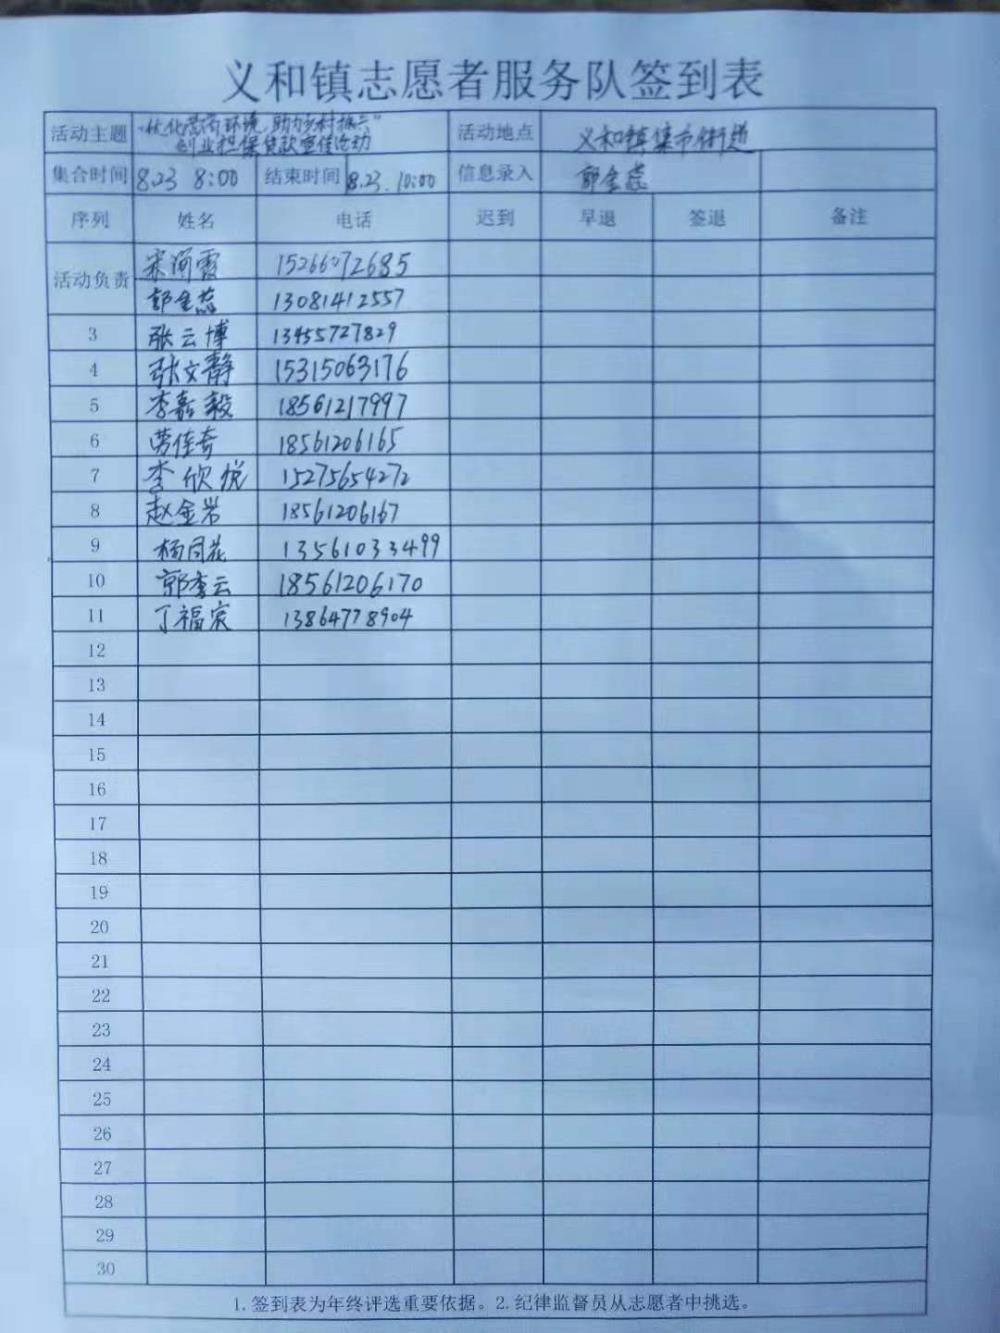 义和镇志愿者服务队签到表
活动主题 "优化营商环境,助力乡村振兴" 活动地点 义和镇集市街道
创业担保贷款宣传活动
集合时间 8.23 8:00 结束时间 8.23.10:00 信息录入 郭金蕊
序列 姓名 电话 迟到 早退 签退 备注
活动负责
宋润霞 15266072685
郭金蕊 13081412557
3 张云博 13455727829
4 张文静 15315063176
5 李嘉毅 18561217997
6 劳佳奇 18561206165
7 李欣悦 15275654272
8 赵金岩 18561206167
9 杨同花 13561033499
10 郭李云 18561206170
11 丁福宸 13864778904
12
13
14
15
16
17
18
19
20
21
22
23
24
25
26
27
28
29
30
1.签到表为年终评选重要依据。2.纪律监督员从志愿者中挑选。